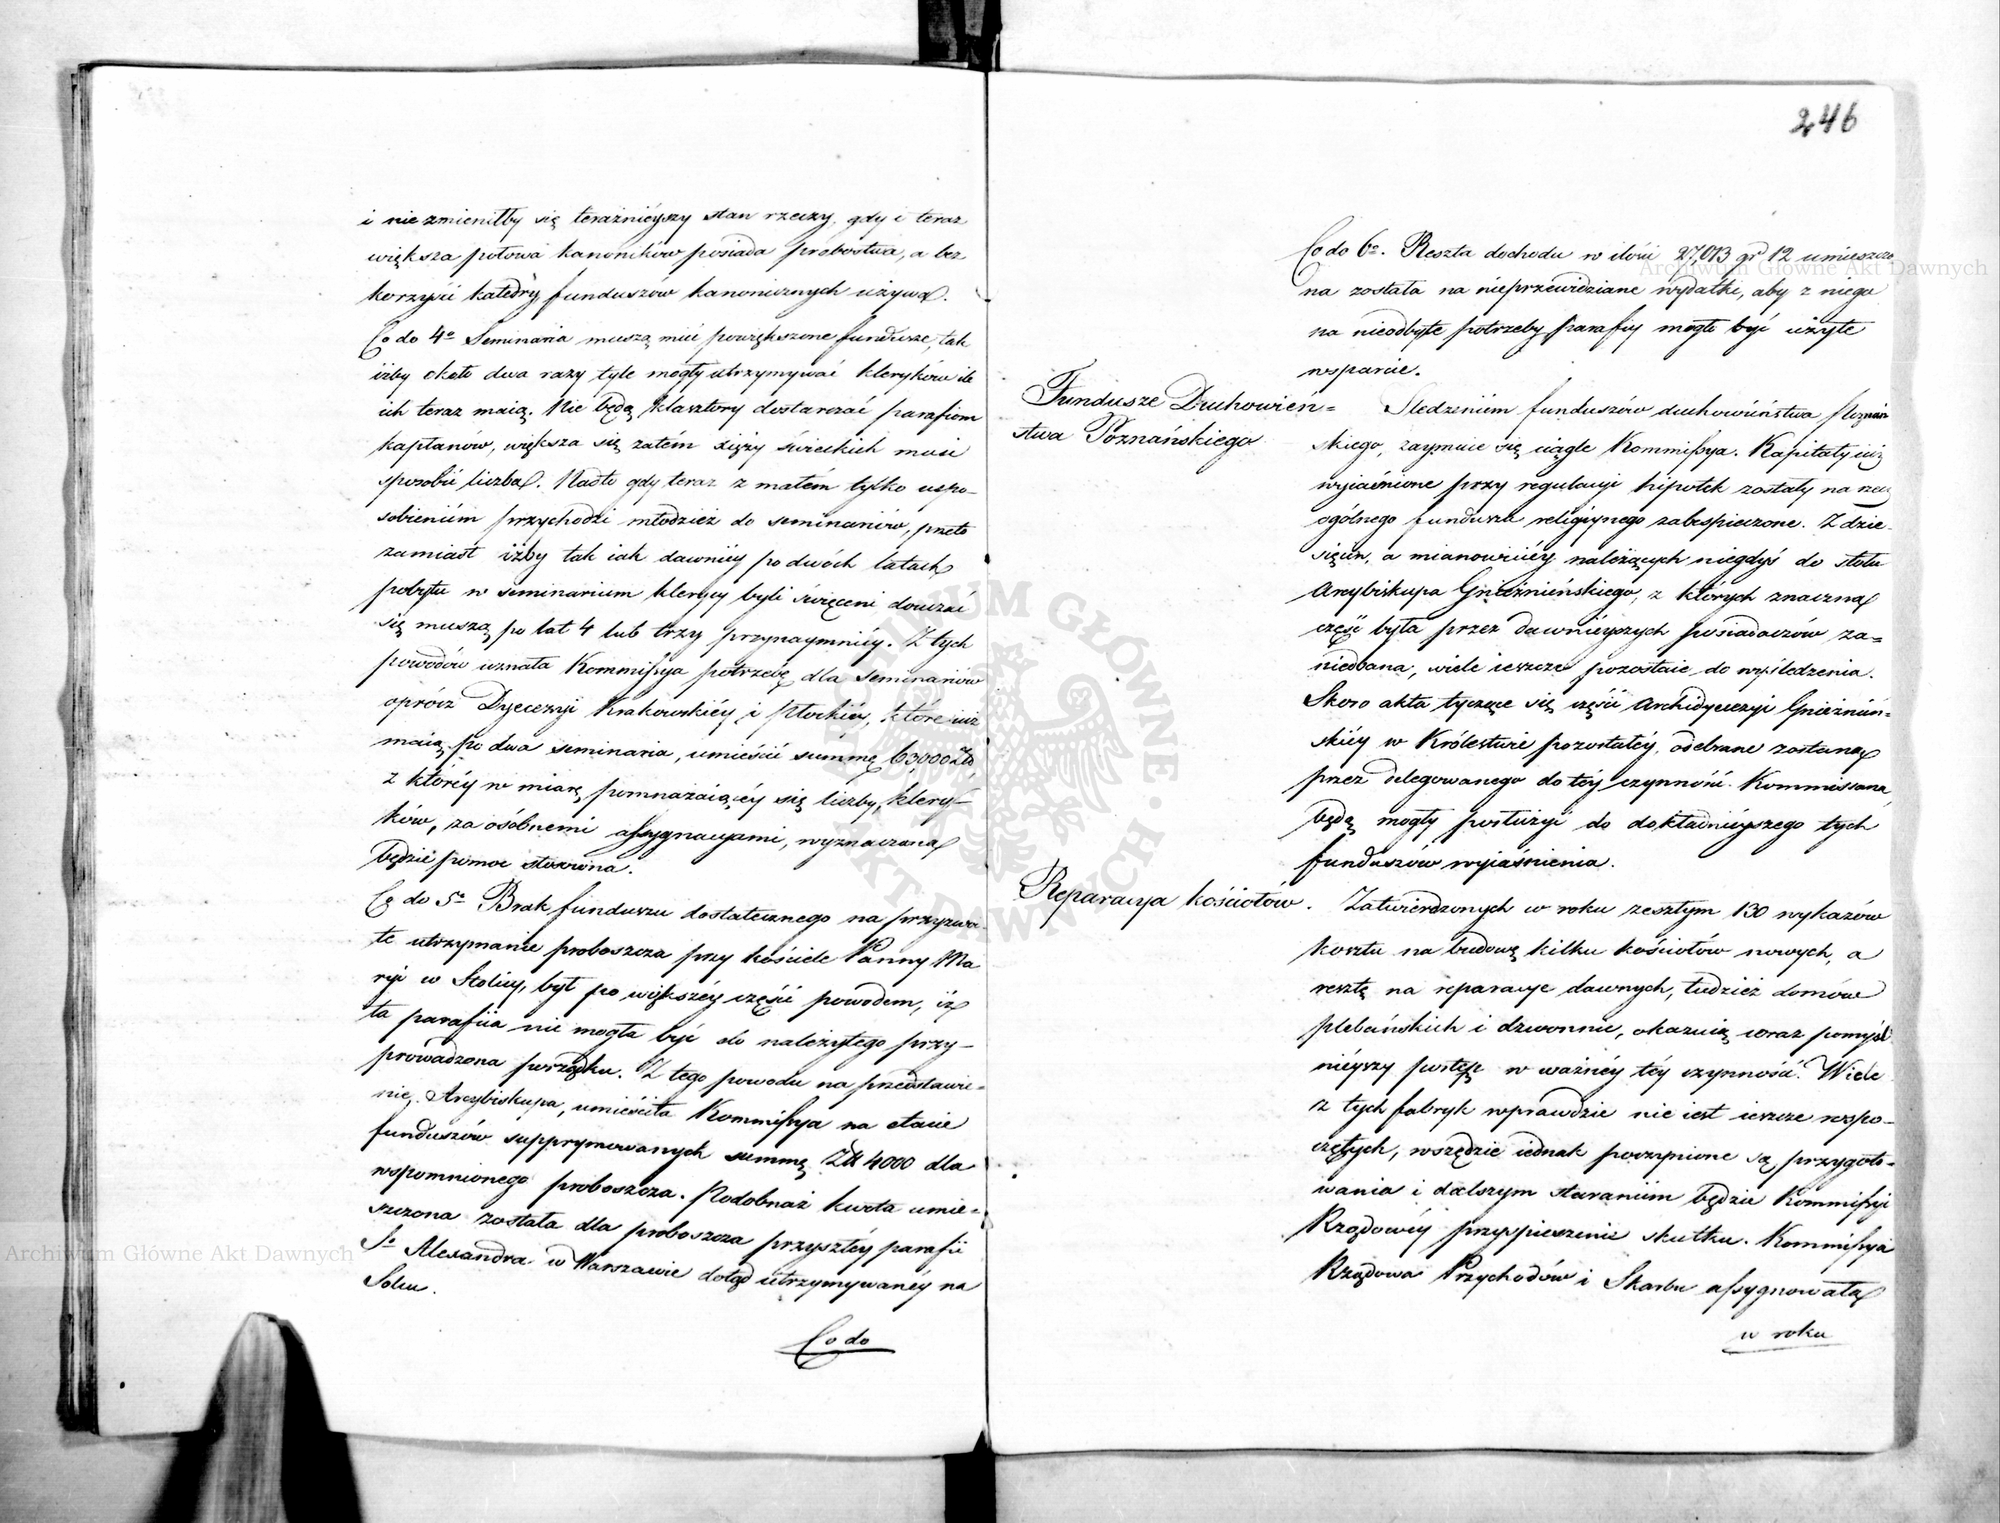 i nie zmieniłby się teraźnieyszy stan rzeczy, gdy i teraz
większa połowa kanoników posiada probostwa, a bez
korzyści katedry funduszów kanonicznych używa.
Co do 4º Seminaria muszą mieć powiększone fundusze, tak
iżby około dwa razy tyle mogły utrzymywać kleryków ile
ich teraz maią. Nie będą klasztory dostarczać parafiom
kapłanów, większa się zatém xięży świeckich musi
sposobić liczba. Nadto gdy teraz z małém tylko uspo-
sobieniem przychodzi młodzież do seminariów, przeto
zamiast iżby tak iak dawniéy po dwóch latach
pobytu w seminarium klerycy byli święceni douczać
się muszą po lat 4 lub trzy przynaymniéy. Z tych
powodów uznała Kommissya potrzebę dla seminariów
oprócz Dyecezyi Krakowskiéy i Płockiéy, które iuż
maią po dwa seminaria, umieścić summę 63,000 Złt,
z któréy w miarę pomnażaiącéy się liczby klery-
ków, za osóbnemi assygnacyami, wyznaczona
będzie pomoc stosowna.
Co do 5º Brak funduszu dostatecznego na przyzwo-
te utrzymanie proboszcza przy kościele Panny Ma
ryi w Stolicy, był po większéy części powodem, iż
ta parafiia nie mogła być do należytego przy-
prowadzona porządku. Z tego powodu na przedstawie-
nie Arcybiskupa, umieściła Kommissya na etacie
funduszów supprymowanych summę Złt 4000 dla
wspomnionego proboszcza. Podobnaż kwota umie-
szczona została dla proboszcza przyszłéy parafii
Sº Alexandra w Warszawie dotąd utrzymywanéy na
Solcu.
Co do
246
Co do 6º. Reszta dochodu w ilości 27,013 gr 12 umieszczo
na została na nieprzewidziane wydatki, aby z niego
na nieodbyte potrzeby parafiy mogło być użyte
wsparcie.
Fundusze Duchowień-
stwa Poznańskiego
Śledzeniem funduszów duchowieństwa Poznań
skiego, zaymuie się ciągle Kommissya. Kapitały iuż
wyiaśnione przy regulacyi hipotek zostały na rzecz
ogólnego funduszu religiynego zabespieczone. Z dzie-
sięcin, a mianowiciéy należących niegdyś do stołu
Arcybiskupa Gnieźnieńskiego, z których znaczna
część była przez dawnieyszych posiadaczów za-
niedbana, wiele ieszcze pozostaie do wyśledzenia.
Skoro akta tyczące się części Archidyecezyi Gnieźnień-
skiéy w Królestwie pozostałéy, odebrane zostaną
przez delegowanego do téy czynności Kommissarza,
będą mogły posłużyć do dokładnieyszego tych
funduszów wyiaśnienia.
Reparacya kościołów.
Zatwierdzonych w roku zeszłym 130 wykazów
kosztu na budowę kilku kościołów nowych, a
resztę na reparacye dawnych, tudzież domów
plebańskich i dzwonnic, okazuią coraz pomyśl
niéyszy postęp w ważnéy téy czynności. Wiele
z tych fabryk wprawdzie nie iest ieszcze rozpo-
czętych, wszędzie iednak poczynione są przygoto-
wania i dalszym staraniem będzie Kommissyi
Rządowéy przyspieszenie skutku. Kommissya
Rządowa Przychodów i Skarbu assygnowała
w roku
Archiwum Główne Akt Dawnych
Archiwum Główne Akt Dawnych
ARCHIWUM GŁÓWNE AKT DAWNYCH